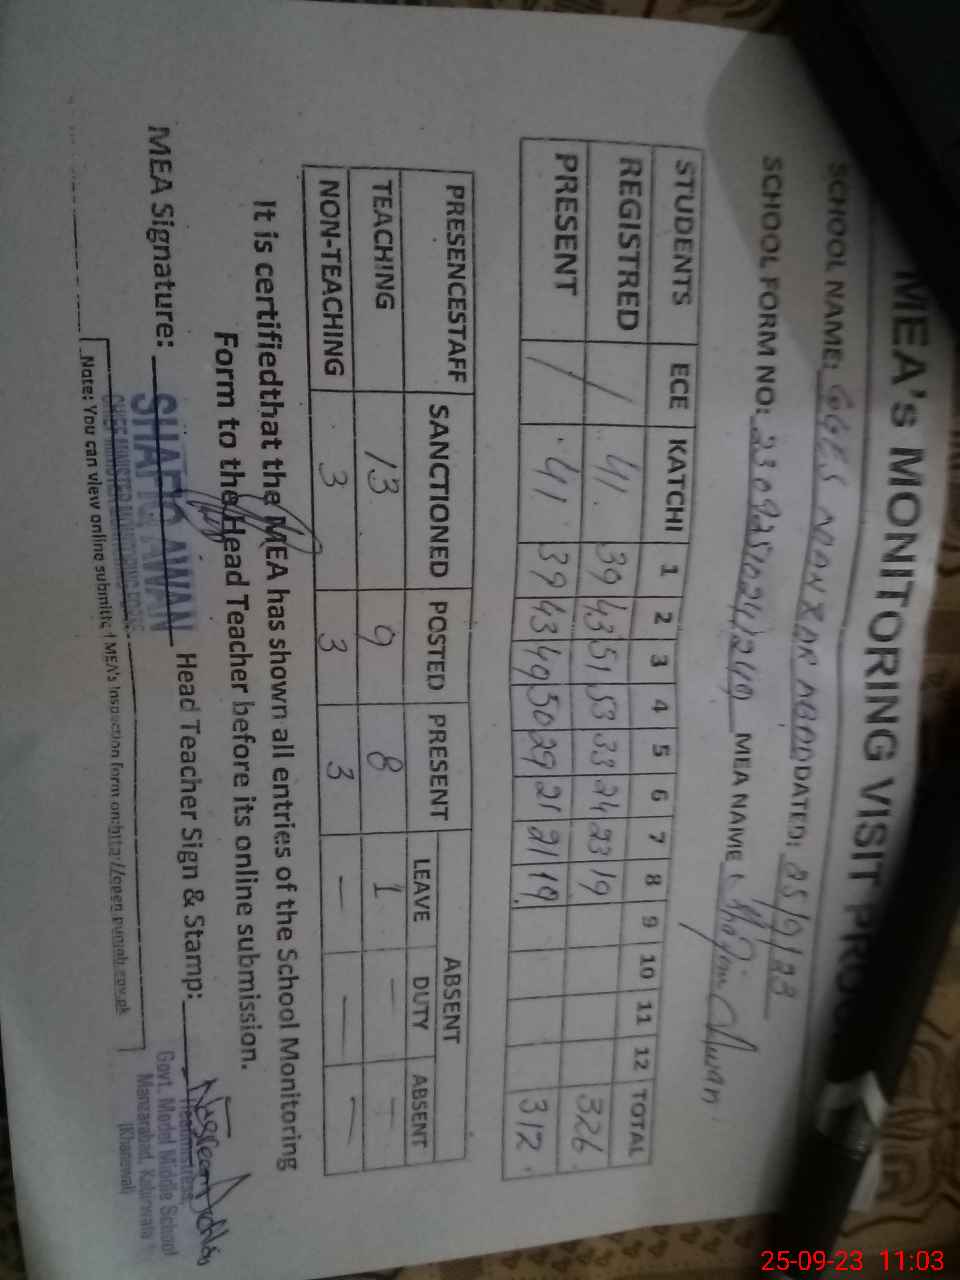 MEA's MONITORING VISIT
SCHOOL NAME: GGES MANZAR ABAD DATED: 25/9/23
SCHOOL FORM NO: MEA NAME: Awan
STUDENTS ECE KATCHI 1 2 3 4 5 6 7 8 9 10 11 12 TOTAL
REGISTRED / 41 39 43 51 53 33 24 23 19 326
PRESENT / 41 39 43 49 50 29 21 21 19 312
PRESENCESTAFF SANCTIONED POSTED PRESENT ABSENT
LEAVE DUTY ABSENT
TEACHING 13 9 8 1 — —
NON-TEACHING 3 3 3 — — —
It is certifiedthat the MEA has shown all entries of the School Monitoring
Form to the Head Teacher before its online submission.
MEA Signature: Head Teacher Sign & Stamp:
AWAN
Headmistress
Govt. Model Middle School
Manzarabad, Kabirwala
(Khanewal)
Note: You can view online submitted MEA's Inspection form on:http://open.punjab.gov.pk
25-09-23 11:03